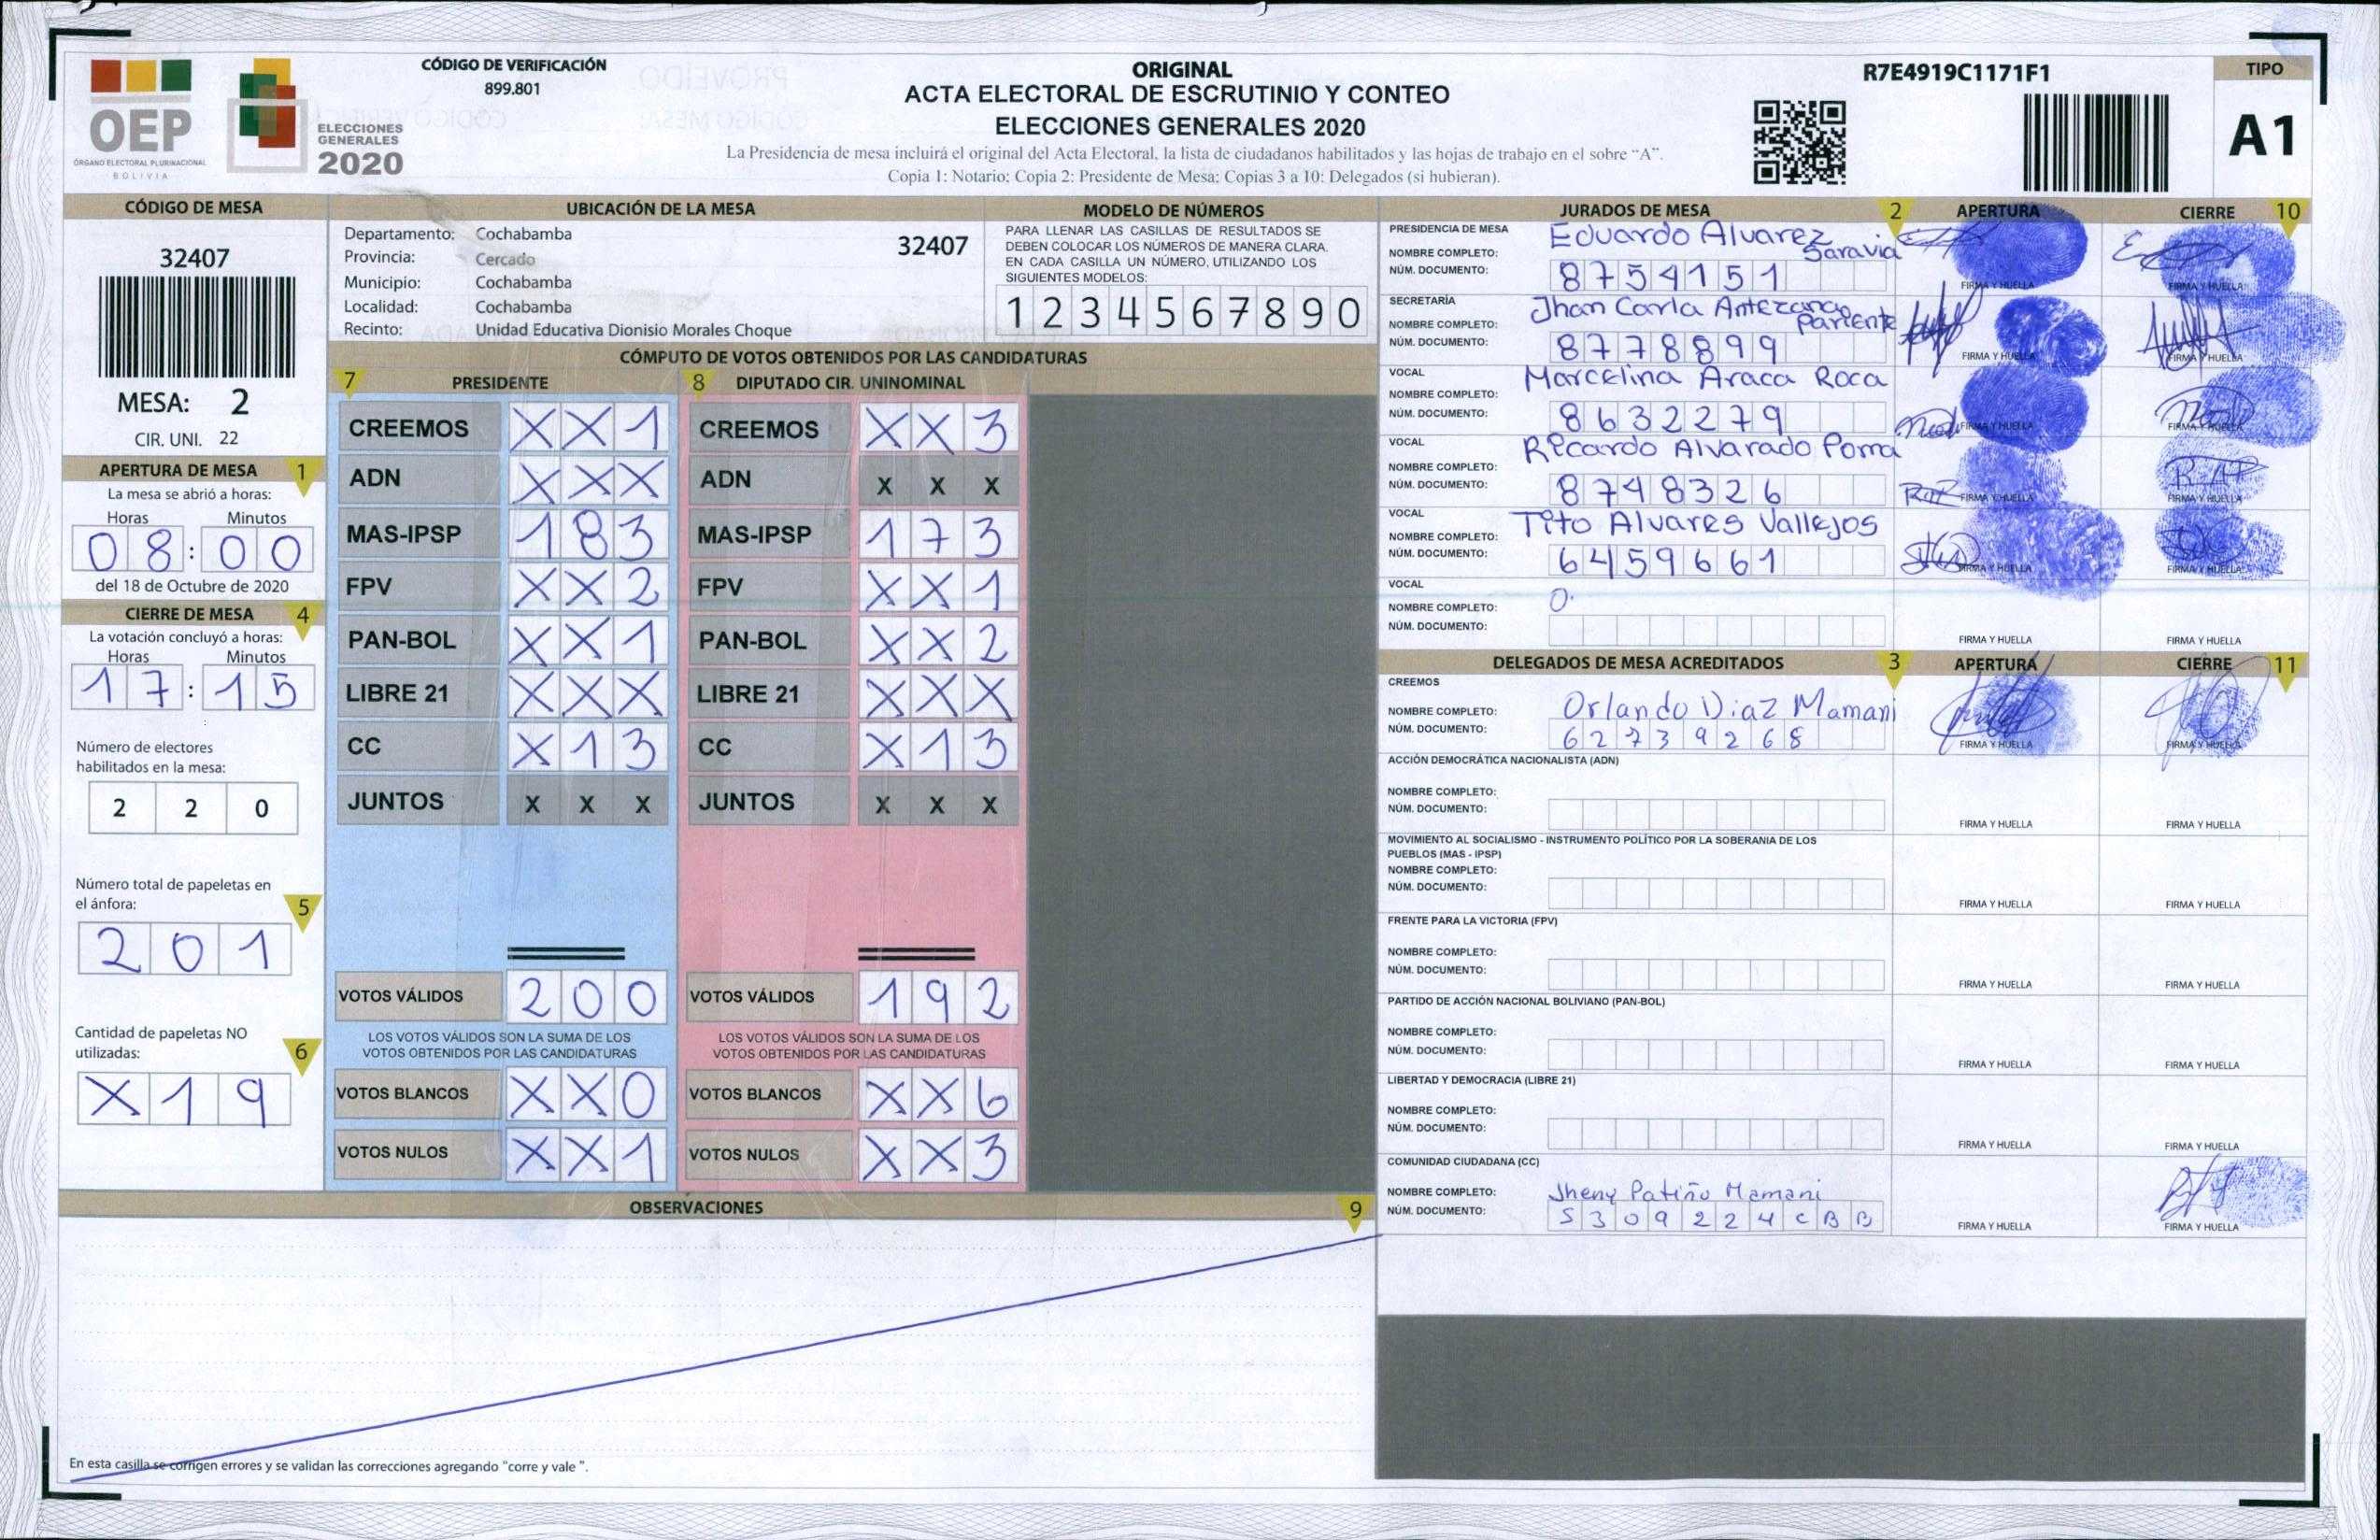 CÓDIGO DE VERIFICACIÓN
899.801
OEP
ÓRGANO ELECTORAL PLURINACIONAL
BOLIVIA
ELECCIONES
GENERALES
2020
ORIGINAL
ACTA ELECTORAL DE ESCRUTINIO Y CONTEO
ELECCIONES GENERALES 2020
La Presidencia de mesa incluirá el original del Acta Electoral, la lista de ciudadanos habilitados y las hojas de trabajo en el sobre “A”.
Copia 1: Notario; Copia 2: Presidente de Mesa; Copias 3 a 10: Delegados (si hubieran).
R7E4919C1171F1
TIPO
A1
CÓDIGO DE MESA
32407
MESA: 2
CIR. UNI. 22
APERTURA DE MESA 1
La mesa se abrió a horas:
Horas Minutos
08:00
del 18 de Octubre de 2020
CIERRE DE MESA 4
La votación concluyó a horas:
Horas Minutos
17:15
Número de electores
habilitados en la mesa:
2 2 0
Número total de papeletas en
el ánfora: 5
2 0 1
Cantidad de papeletas NO
utilizadas: 6
X 1 9
UBICACIÓN DE LA MESA
Departamento: Cochabamba 32407
Provincia: Cercado
Municipio: Cochabamba
Localidad: Cochabamba
Recinto: Unidad Educativa Dionisio Morales Choque
MODELO DE NÚMEROS
PARA LLENAR LAS CASILLAS DE RESULTADOS SE
DEBEN COLOCAR LOS NÚMEROS DE MANERA CLARA.
EN CADA CASILLA UN NÚMERO, UTILIZANDO LOS
SIGUIENTES MODELOS:
1 2 3 4 5 6 7 8 9 0
CÓMPUTO DE VOTOS OBTENIDOS POR LAS CANDIDATURAS
7 PRESIDENTE 8 DIPUTADO CIR. UNINOMINAL
CREEMOS X X 1 CREEMOS X X 3
ADN X X X ADN X X X
MAS-IPSP 1 8 3 MAS-IPSP 1 7 3
FPV X X 2 FPV X X 1
PAN-BOL X X 1 PAN-BOL X X 2
LIBRE 21 X X X LIBRE 21 X X X
CC X 1 3 CC X 1 3
JUNTOS X X X JUNTOS X X X
VOTOS VÁLIDOS 2 0 0 VOTOS VÁLIDOS 1 9 2
LOS VOTOS VÁLIDOS SON LA SUMA DE LOS LOS VOTOS VÁLIDOS SON LA SUMA DE LOS
VOTOS OBTENIDOS POR LAS CANDIDATURAS VOTOS OBTENIDOS POR LAS CANDIDATURAS
VOTOS BLANCOS X X 0 VOTOS BLANCOS X X 6
VOTOS NULOS X X 1 VOTOS NULOS X X 3
OBSERVACIONES 9
En esta casilla se corrigen errores y se validan las correcciones agregando "corre y vale ".
JURADOS DE MESA 2 APERTURA CIERRE 10
PRESIDENCIA DE MESA
NOMBRE COMPLETO: Eduardo Alvarez Saravia
NÚM. DOCUMENTO: 8754151
FIRMA Y HUELLA FIRMA Y HUELLA
SECRETARÍA
NOMBRE COMPLETO: Jhan Carla Antezana Pariente
NÚM. DOCUMENTO: 8778899
FIRMA Y HUELLA FIRMA Y HUELLA
VOCAL
NOMBRE COMPLETO: Marcelina Araca Roca
NÚM. DOCUMENTO: 8632279
FIRMA Y HUELLA FIRMA Y HUELLA
VOCAL
NOMBRE COMPLETO: Ricardo Alvarado Poma
NÚM. DOCUMENTO: 8748326
FIRMA Y HUELLA FIRMA Y HUELLA
VOCAL
NOMBRE COMPLETO: Tito Alvares Vallejos
NÚM. DOCUMENTO: 6459661
FIRMA Y HUELLA FIRMA Y HUELLA
VOCAL
NOMBRE COMPLETO:
NÚM. DOCUMENTO:
FIRMA Y HUELLA FIRMA Y HUELLA
DELEGADOS DE MESA ACREDITADOS 3 APERTURA CIERRE 11
CREEMOS
NOMBRE COMPLETO: Orlando Diaz Mamani
NÚM. DOCUMENTO: 62739268
FIRMA Y HUELLA FIRMA Y HUELLA
ACCIÓN DEMOCRÁTICA NACIONALISTA (ADN)
NOMBRE COMPLETO:
NÚM. DOCUMENTO:
FIRMA Y HUELLA FIRMA Y HUELLA
MOVIMIENTO AL SOCIALISMO - INSTRUMENTO POLÍTICO POR LA SOBERANIA DE LOS
PUEBLOS (MAS - IPSP)
NOMBRE COMPLETO:
NÚM. DOCUMENTO:
FIRMA Y HUELLA FIRMA Y HUELLA
FRENTE PARA LA VICTORIA (FPV)
NOMBRE COMPLETO:
NÚM. DOCUMENTO:
FIRMA Y HUELLA FIRMA Y HUELLA
PARTIDO DE ACCIÓN NACIONAL BOLIVIANO (PAN-BOL)
NOMBRE COMPLETO:
NÚM. DOCUMENTO:
FIRMA Y HUELLA FIRMA Y HUELLA
LIBERTAD Y DEMOCRACIA (LIBRE 21)
NOMBRE COMPLETO:
NÚM. DOCUMENTO:
FIRMA Y HUELLA FIRMA Y HUELLA
COMUNIDAD CIUDADANA (CC)
NOMBRE COMPLETO: Jheny Patiño Mamani
NÚM. DOCUMENTO: 5309224CBB
FIRMA Y HUELLA FIRMA Y HUELLA